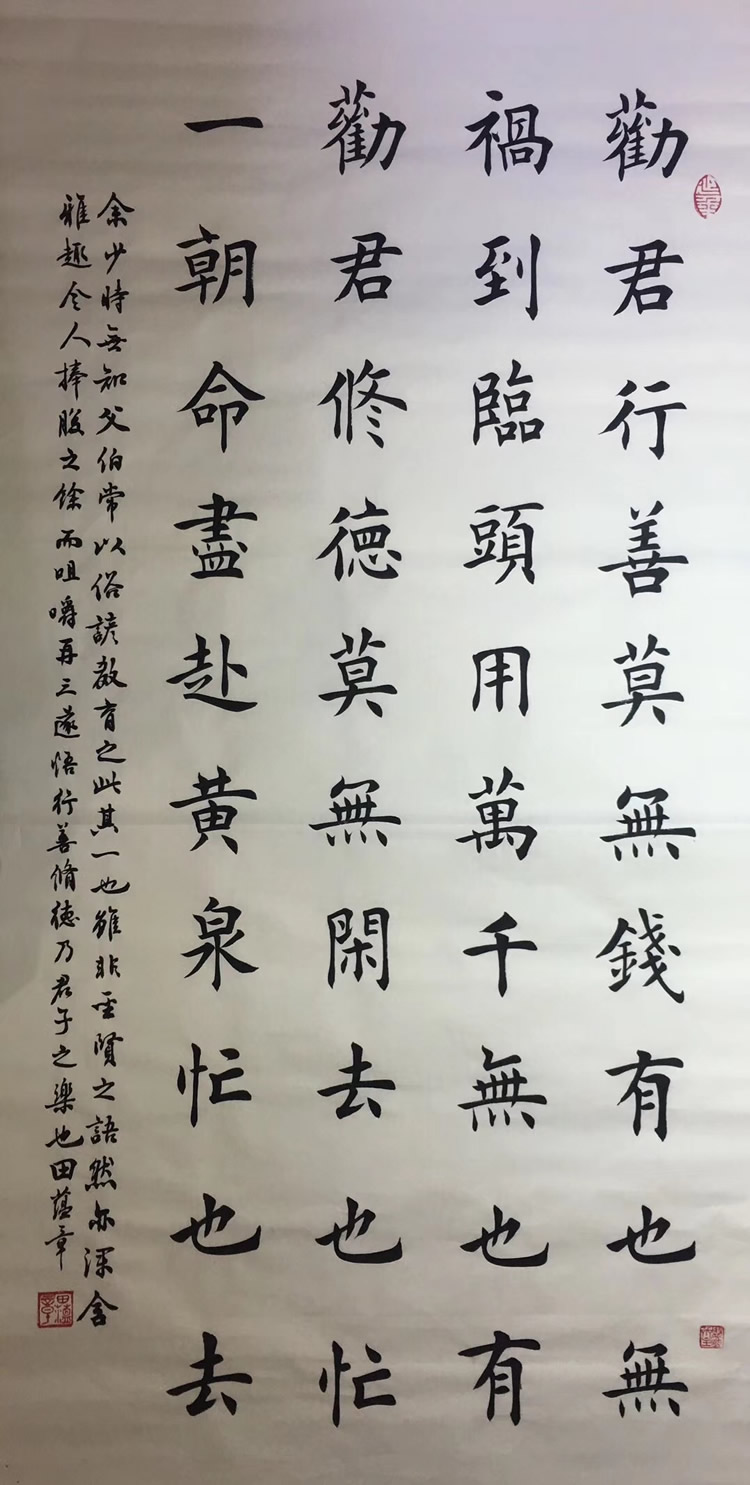 勸君行善莫無錢有也無
禍到臨頭用萬千無也有
勸君修德莫無閑去也忙
一朝命盡赴黃泉忙也去
余少時無知父伯常以俗諺教育之此其一也雖非聖賢之語然亦深含
雅趣令人捧腹之餘而咀嚼再三遂悟行善脩德乃君子之樂也田蘊章